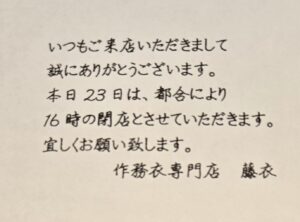 いつもご来店いただきまして
誠にありがとうございます。
本日23日は、都合により
16時の閉店とさせていただきます。
宜しくお願い致します。
作務衣専門店　藤衣